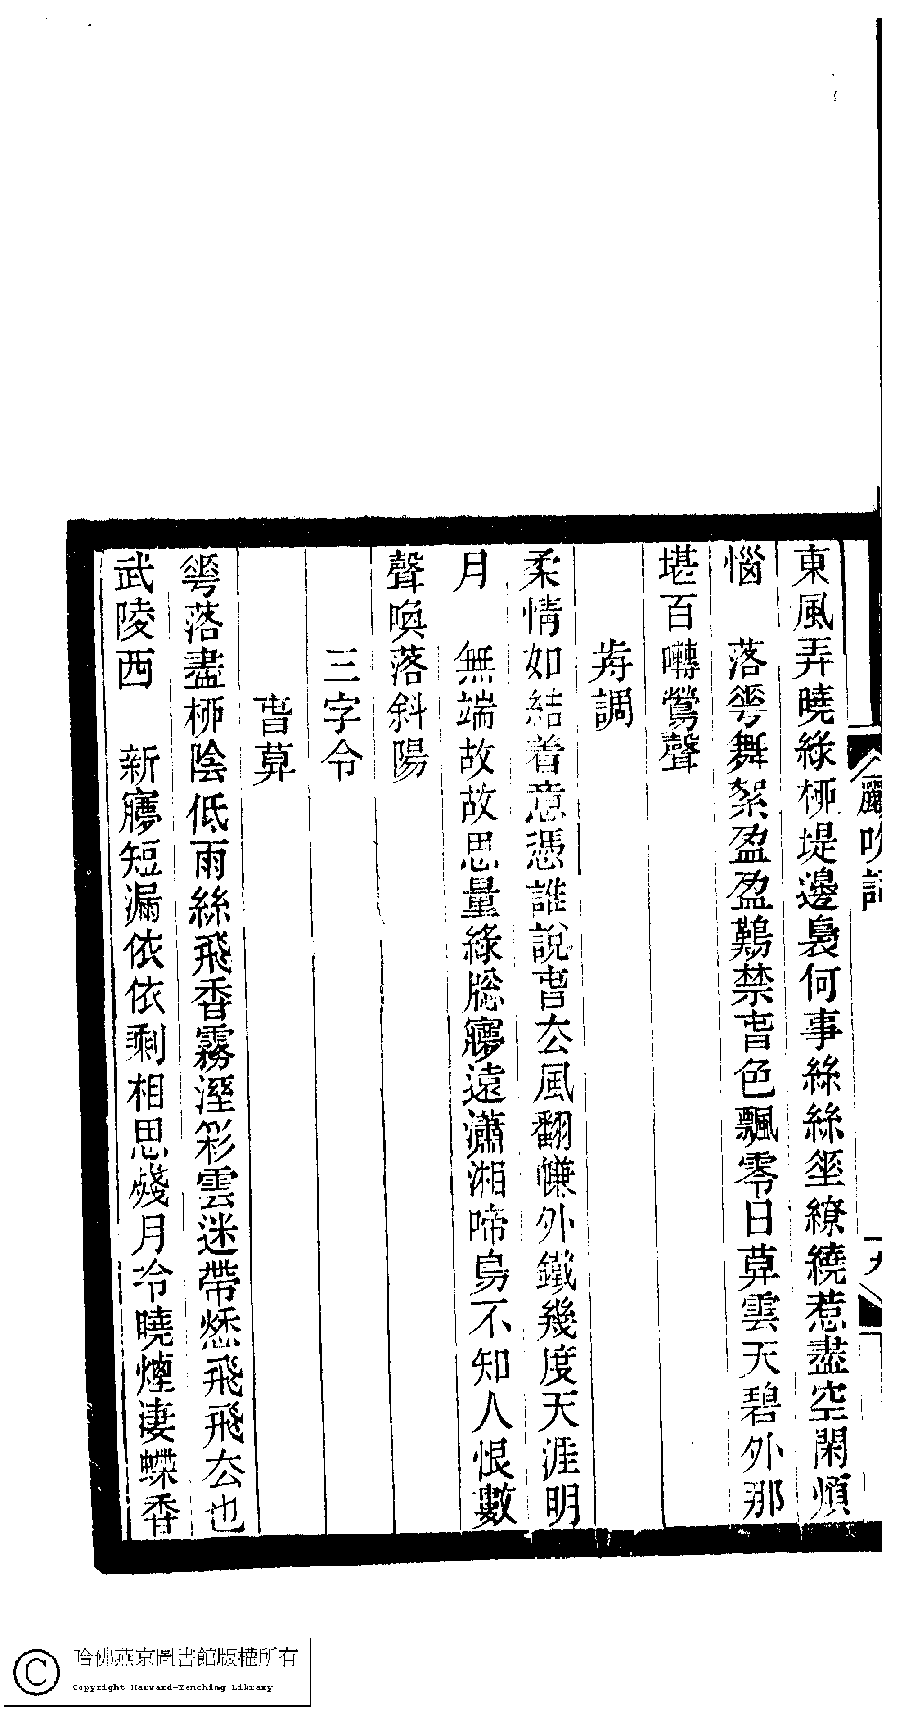 東風弄曉綠桺堤邊裊何事絲絲坙繚繞惹盡空閑煩
惱　落蕚舞絮盈盈鷬禁旾色飄零日莫雲天碧外那
堪百囀鶯聲
歬調
柔情如結着意憑誰說旾厺風翻㡘外鐵幾度天涯明
月　無端故故思量綠牕寱遠瀟湘啼鳥不知人恨數
聲喚落斜陽
三字令
旾莫
蕚落盡桺陰低雨絲飛香霧溼彩雲迷帶愁飛飛厺也
武陵西　新寱短漏依依剩相思殘月冷曉煙淒蝶香
哈佛燕京圖書館版權所有
Copyright Harvard-Yenching Library